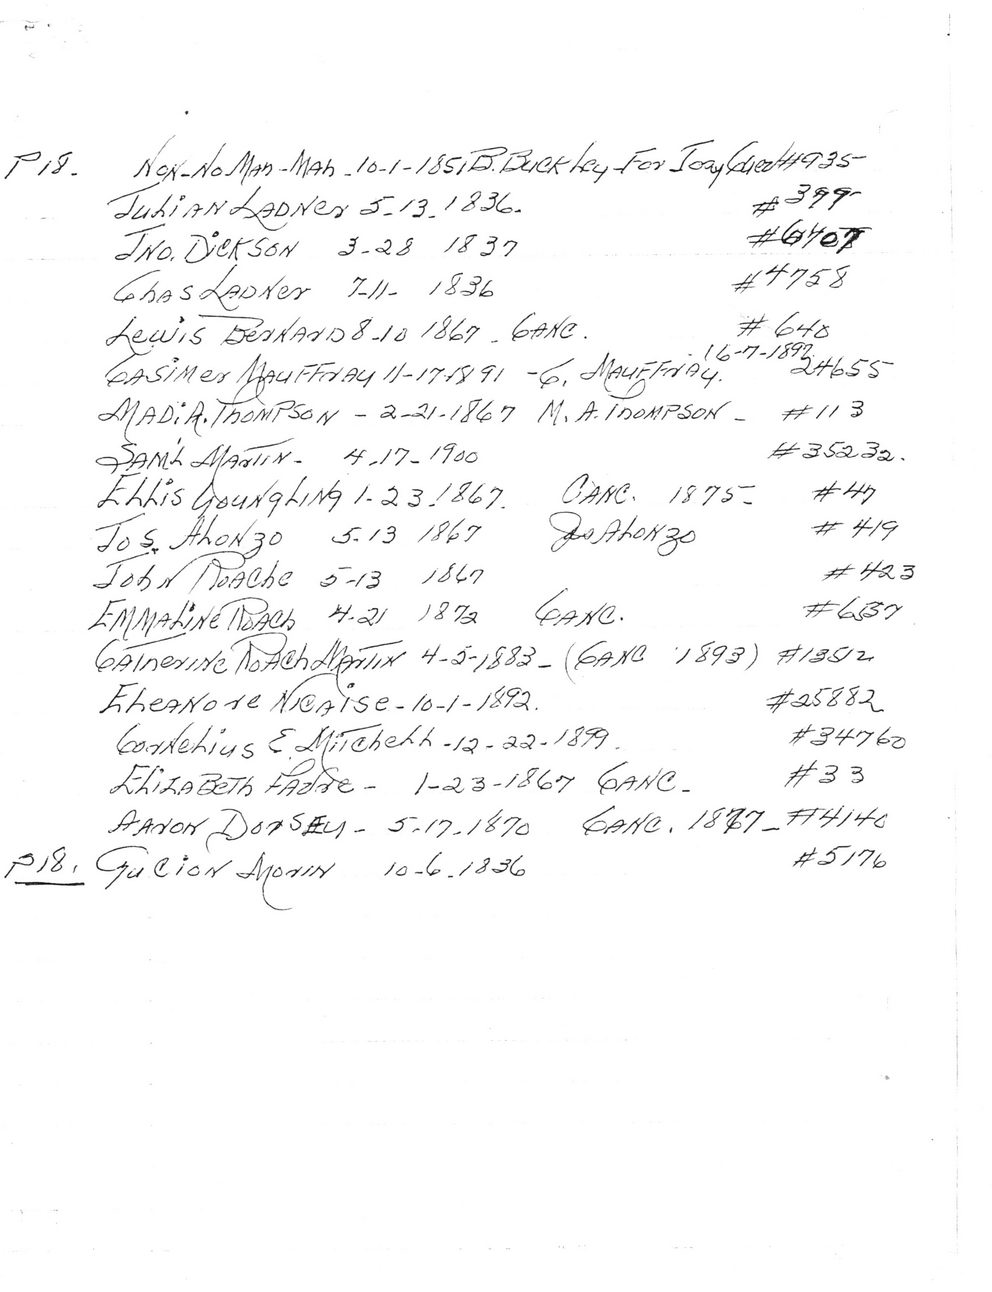 P18. Nox-No Mah-Mah - 10-1-1851 B. Buckley For #935
Julian Ladner 5-13-1836. #399
Jno. Dickson 3-28 1837
Chas Ladner 7-11- 1836 #4758
Lewis Bernard 8-10 1867 - Canc. # 640
16-7-1892
Casimer Mauffray 11-17-1891 - C. Mauffray. 24655
Madi A. Thompson - 2-21-1867 M. A. Thompson - #113
Sam'l Martin - 4-17-1900 #35232.
Ellis Youngling 1-23-1867. Canc. 1875- #47
Jos. Alonzo 5-13 1867 Jos Alonzo # 419
John Roache 5-13 1867 #423
Emmaline Roach 4-21 1872 Canc. #6537
Catherine Roach Martin 4-5-1883 - (Canc 1893) #13512
Eleanore Nicaise - 10-1-1892. #25882
Cornelius E. Mitchell - 12-22-1899. #34760
Elizabeth Favre - 1-23-1867 Canc - #33
Aaron Dorsey - 5-17-1870 Canc. 1877 - #4140
P18. Gucion Morin 10-6-1836 #5176